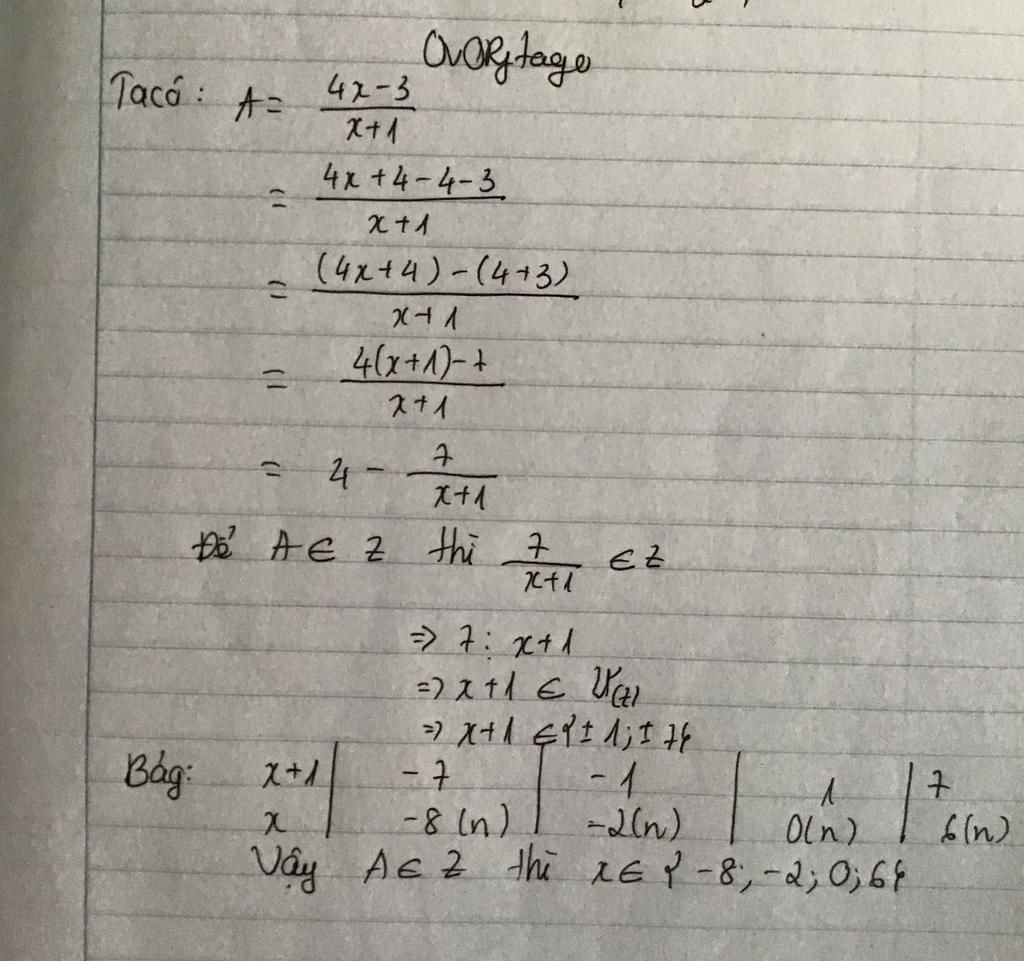 OvORgtage
Tacó: A = (4x-3)/(x+1)
= (4x+4-4-3)/(x+1)
= ((4x+4)-(4+3))/(x+1)
= (4(x+1)-7)/(x+1)
= 4 - 7/(x+1)
Để A ∈ Z thì 7/(x+1) ∈ Z
⇒ 7 ⋮ x+1
⇒ x+1 ∈ Ư(7)
⇒ x+1 ∈ {±1; ±7}
Bảg: x+1 | -7 | -1 | 1 | 7
x | -8(n) | -2(n) | 0(n) | 6(n)
Vậy A ∈ Z thì x ∈ {-8; -2; 0; 6}